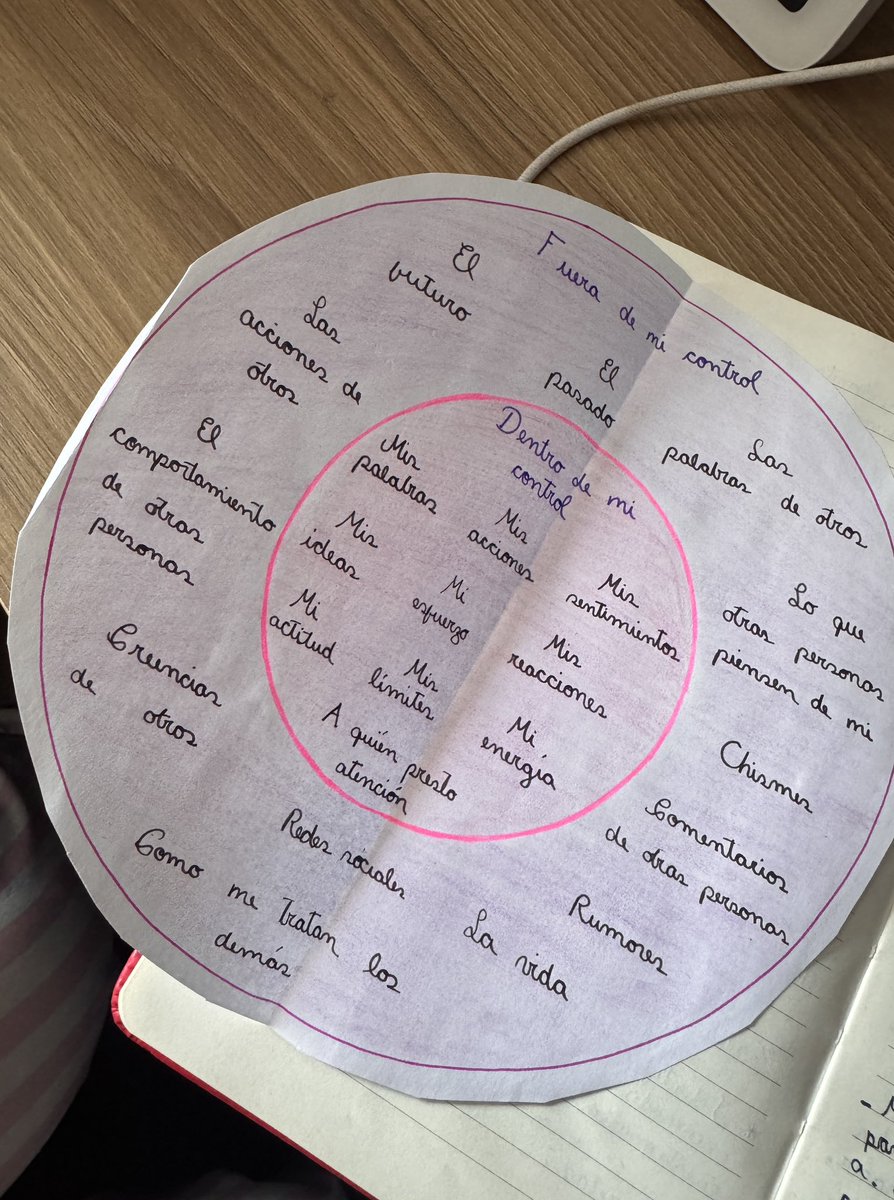 Fuera de mi control
El
futuro
Las
acciones de
otros
El
pasado
Las
palabras de otros
El
comportamiento
de otras
personas
Lo que
otras personas
piensen de mi
Creencias
de otros
Chismes
Comentarios
de otras personas
Redes sociales
Rumores
La vida
Como me tratan los
demás
Dentro de mi
control
Mis
palabras
Mis
acciones
Mis
ideas
Mis
sentimientos
Mi
esfuerzo
Mi
actitud
Mis
reacciones
Mis
límites
Mi
energía
A quién presto
atención
a.